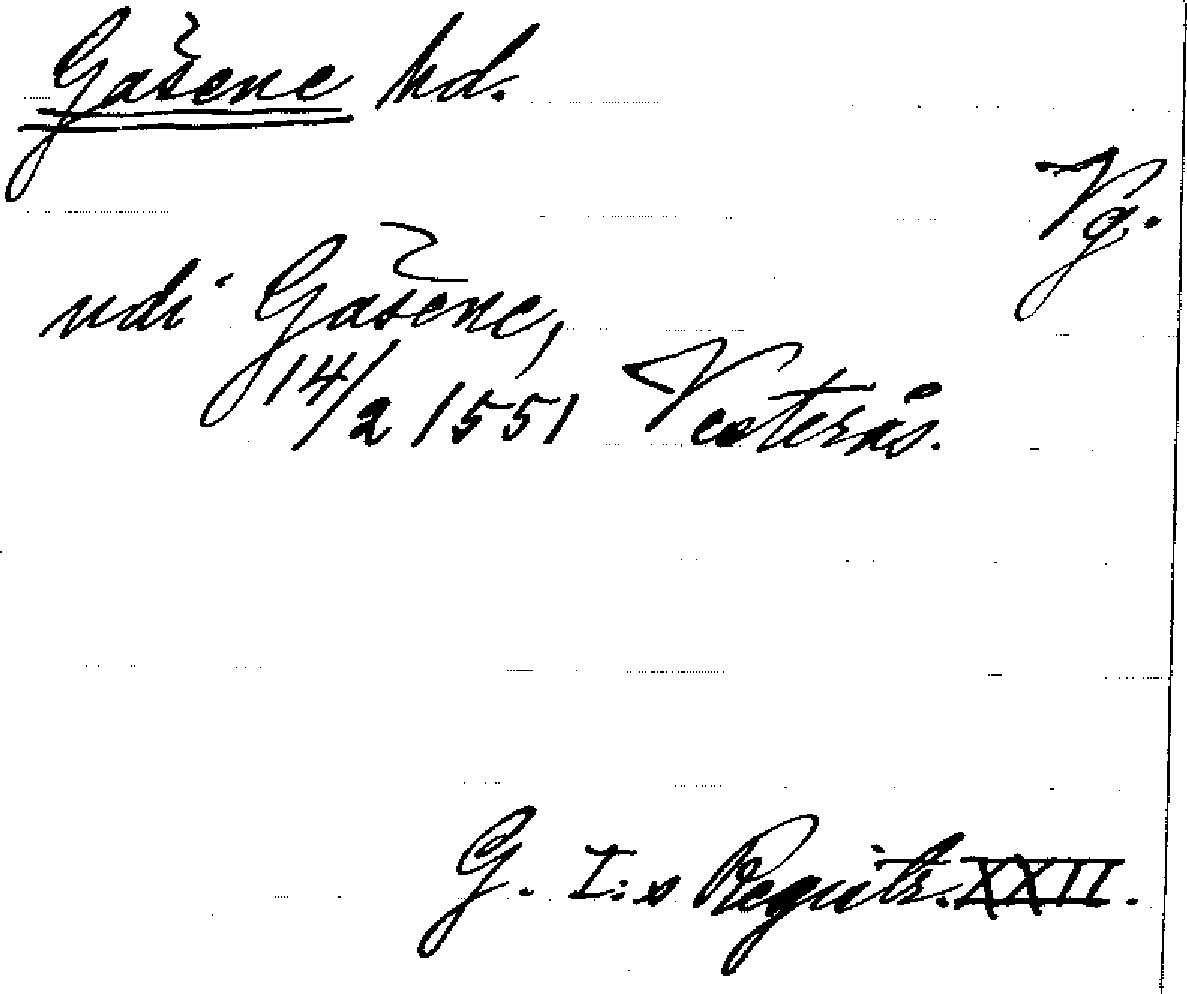 Gašene hd.
Vg.
vdi Gašene,
14/2 1551 Vesterås.
G. I:s Registr. XXII.